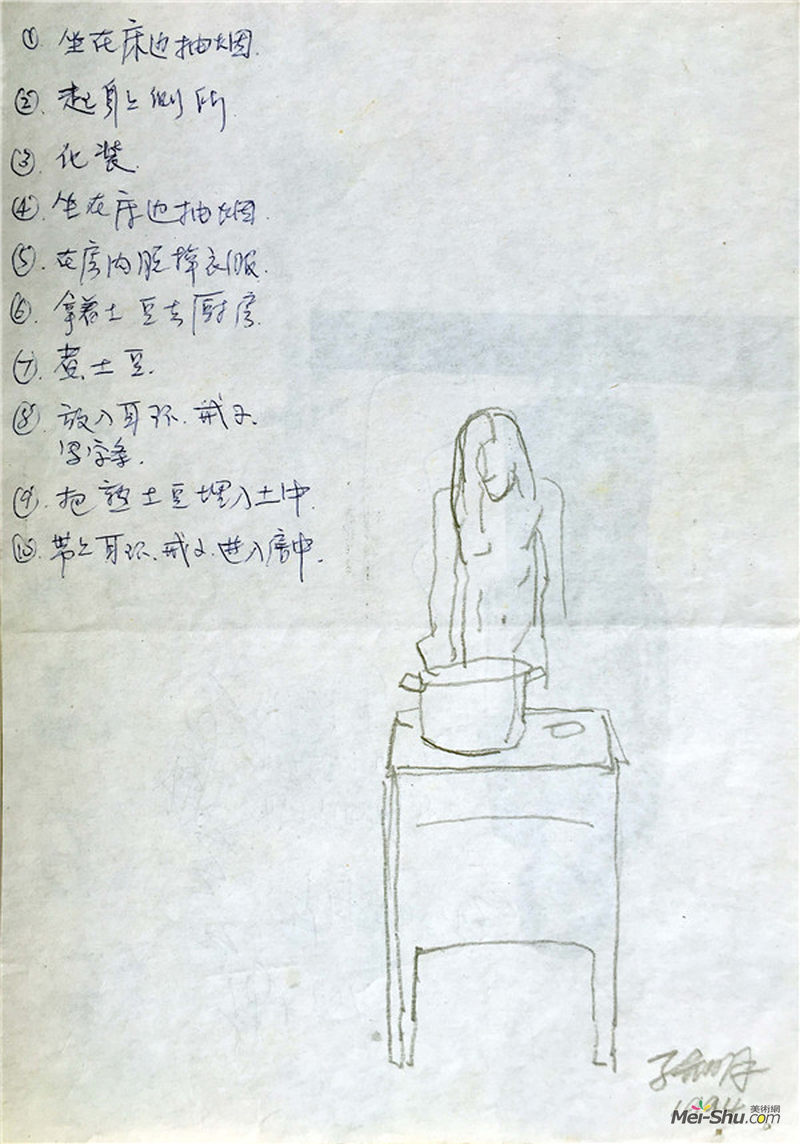 ① 坐在床边抽烟.
② 起身上厕所.
③ 化装.
④ 坐在床边抽烟.
⑤ 在房内脱掉衣服.
⑥ 拿着土豆去厨房.
⑦ 煮土豆.
⑧ 放入耳环.戒子.
⑨ 把熟土豆埋入土中.
⑩ 带上耳环.戒子.进入房中.
1994
美術網
Mei-Shu.com